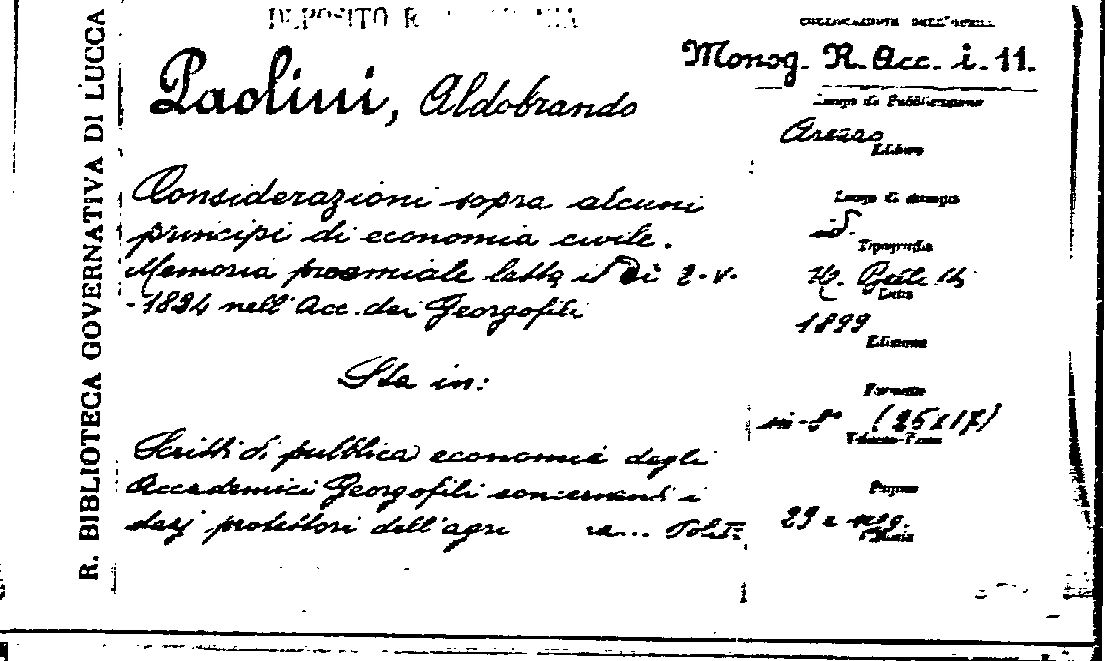 R. BIBLIOTECA GOVERNATIVA DI LUCCA
DEPOSITO
COLLOCAZIONE DELL'OPERA
Monog. R. Acc. i. 11.
Paolini, Aldobrando
Considerazioni sopra alcuni
principi di economia civile.
Memoria proemiale letta il dì 2-V-
-1824 nell'Acc. dei Georgofili
Sta in:
Scritti di pubblica economia degli
Accademici Georgofili concernenti i
dazj protettori dell'agri ra... Vol. II
Luogo di Pubblicazione
Arezzo
Editore
Luogo di stampa
id.
Tipografia
Data
1899
Edizione
Formato
in-8° (25x17)
Pagine
29 e seg.